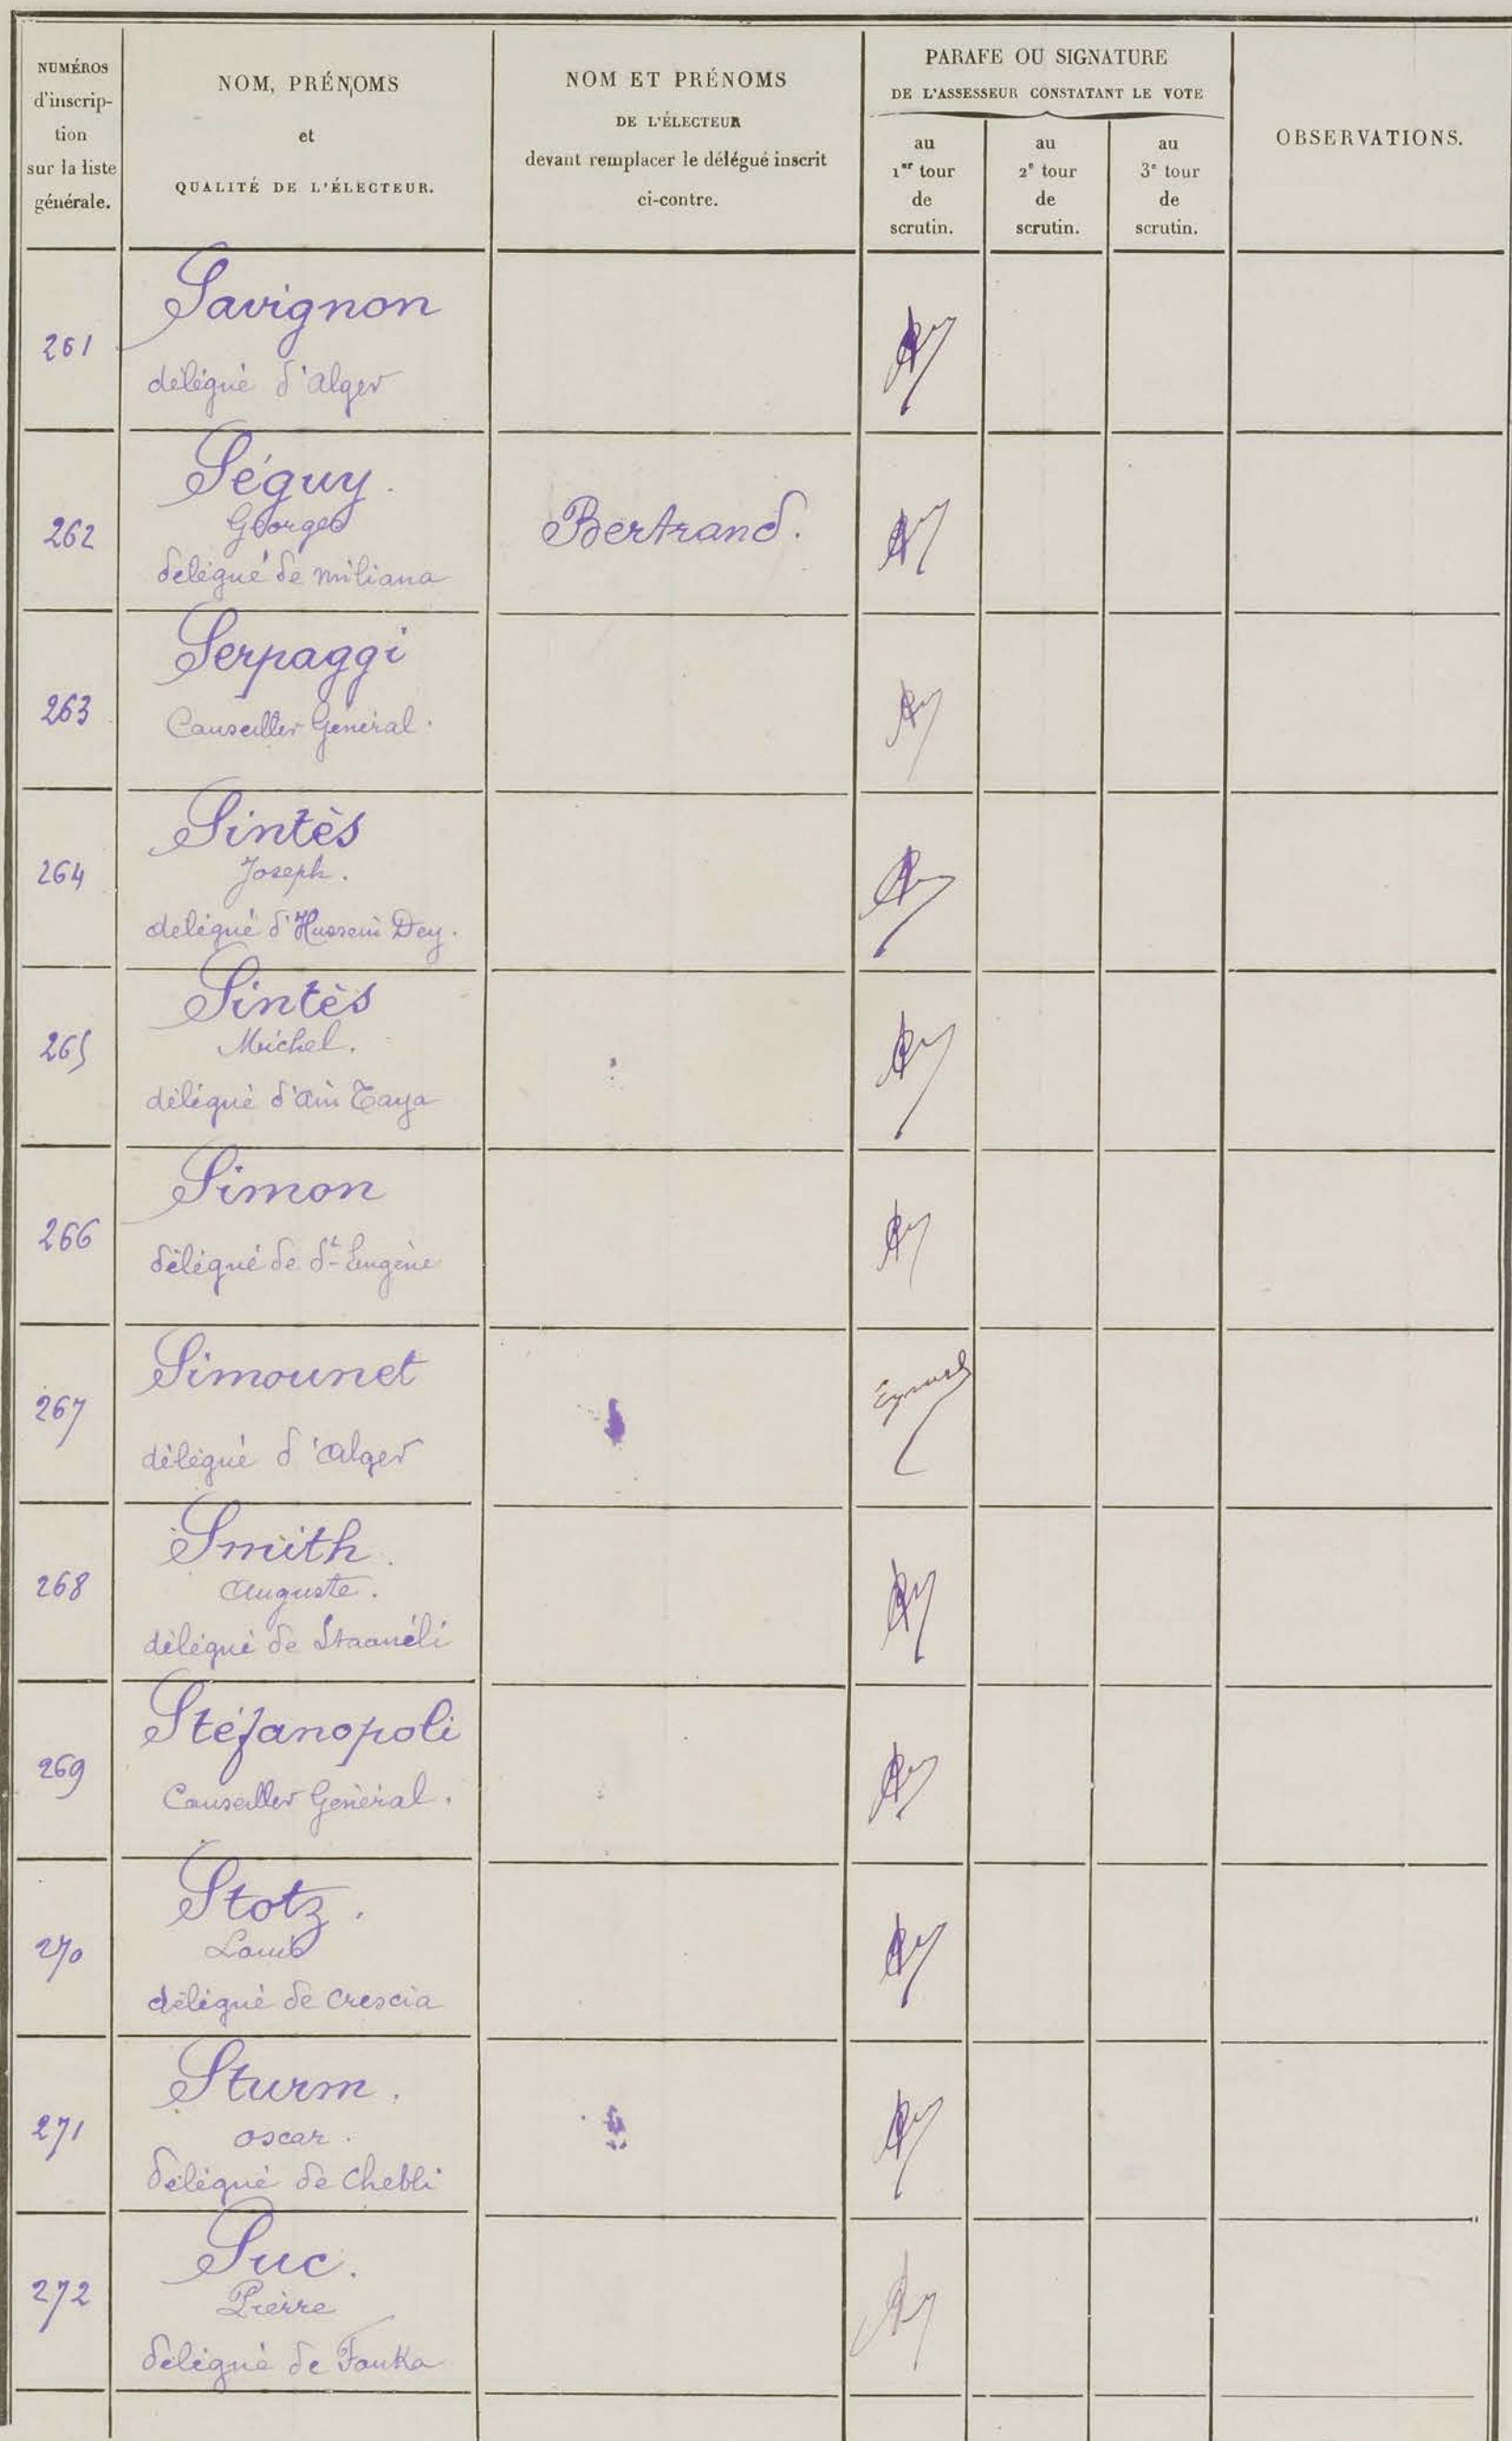 NUMÉROS
d'inscrip-
tion
sur la liste
générale.
NOM, PRÉNOMS
et
QUALITÉ DE L'ÉLECTEUR.
NOM ET PRÉNOMS
DE L'ÉLECTEUR
devant remplacer le délégué inscrit
ci-contre.
PARAFE OU SIGNATURE
DE L'ASSESSEUR CONSTATANT LE VOTE
au
1er tour
de
scrutin.
au
2e tour
de
scrutin.
au
3e tour
de
scrutin.
OBSERVATIONS.
261
Savignon
délégué d'Alger
262
Séguy.
Georges
délégué de Miliana
Bertrand.
263
Serpaggi
Conseiller Général.
264
Sintès
Joseph.
délégué d'Hussein Dey.
265
Sintès
Michel.
délégué d'Aïn Taya
266
Simon
délégué de St Eugène
267
Simounet
délégué d'Alger
268
Smith.
Auguste.
délégué de Staouéli
269
Stéfanopoli
Conseiller Général.
270
Stotz.
Louis
délégué de Crescia
271
Sturm.
Oscar.
délégué de Chebli
272
Suc.
Pierre
délégué de Fouka